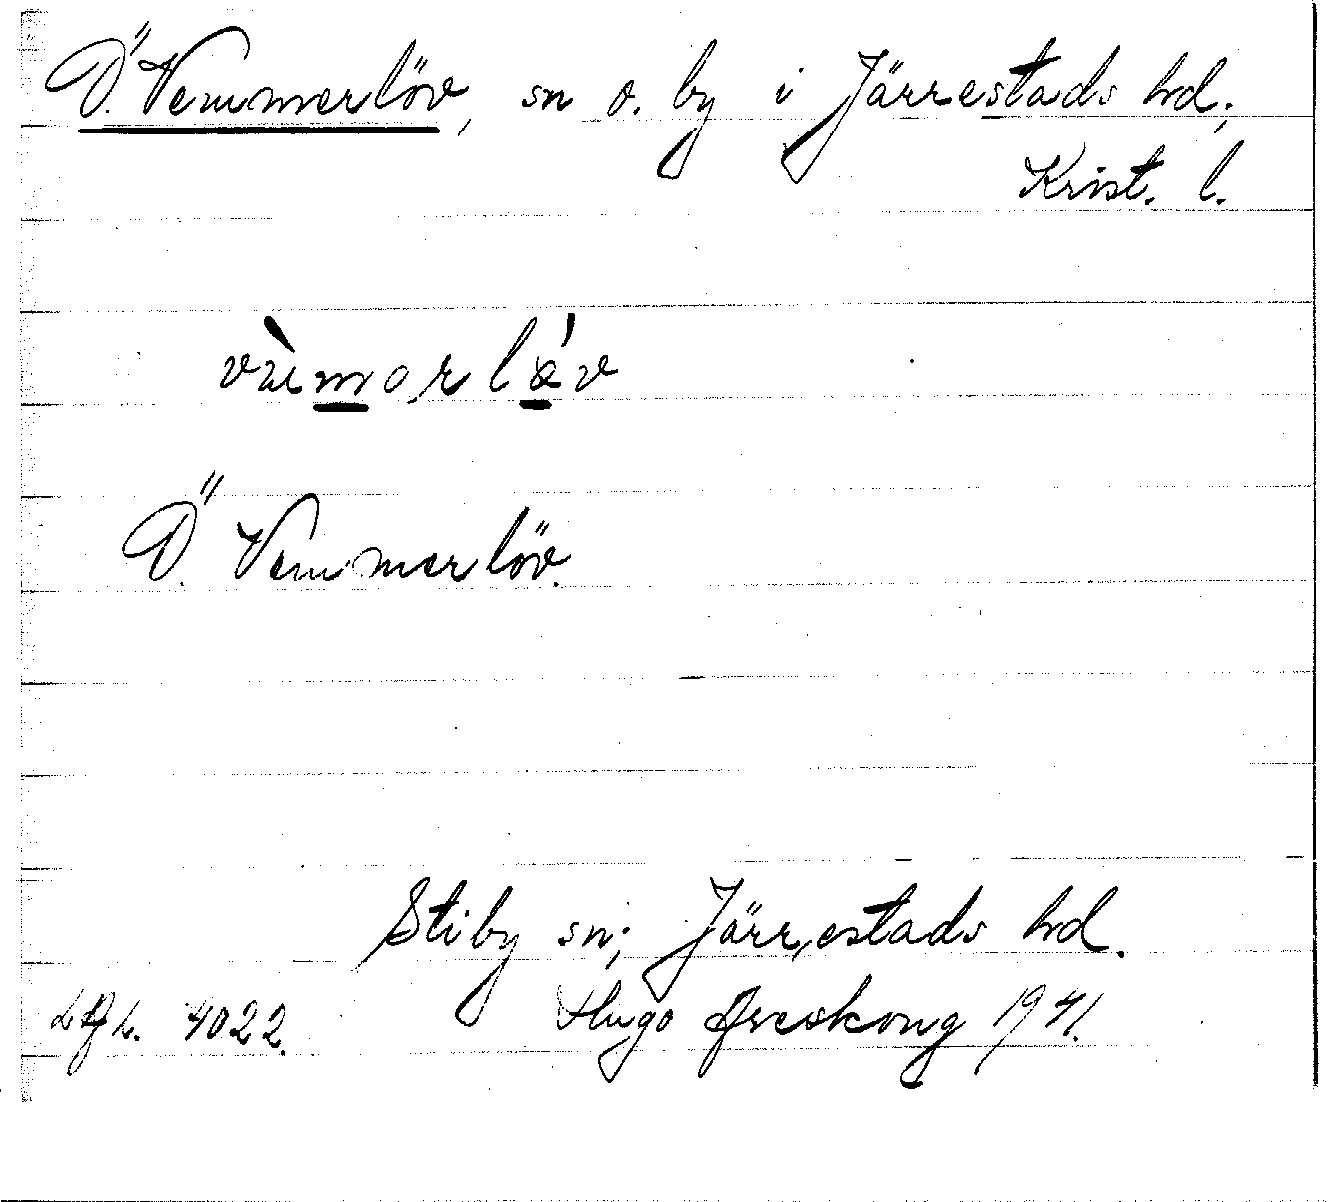 Ö. Vemmerlöv, sn o. by i Järrestads hd,
Krist. l.
Ö. Vemmerlöv.
Stiby sn, Järrestads hd.
4022. Hugo Areskoug 1941.